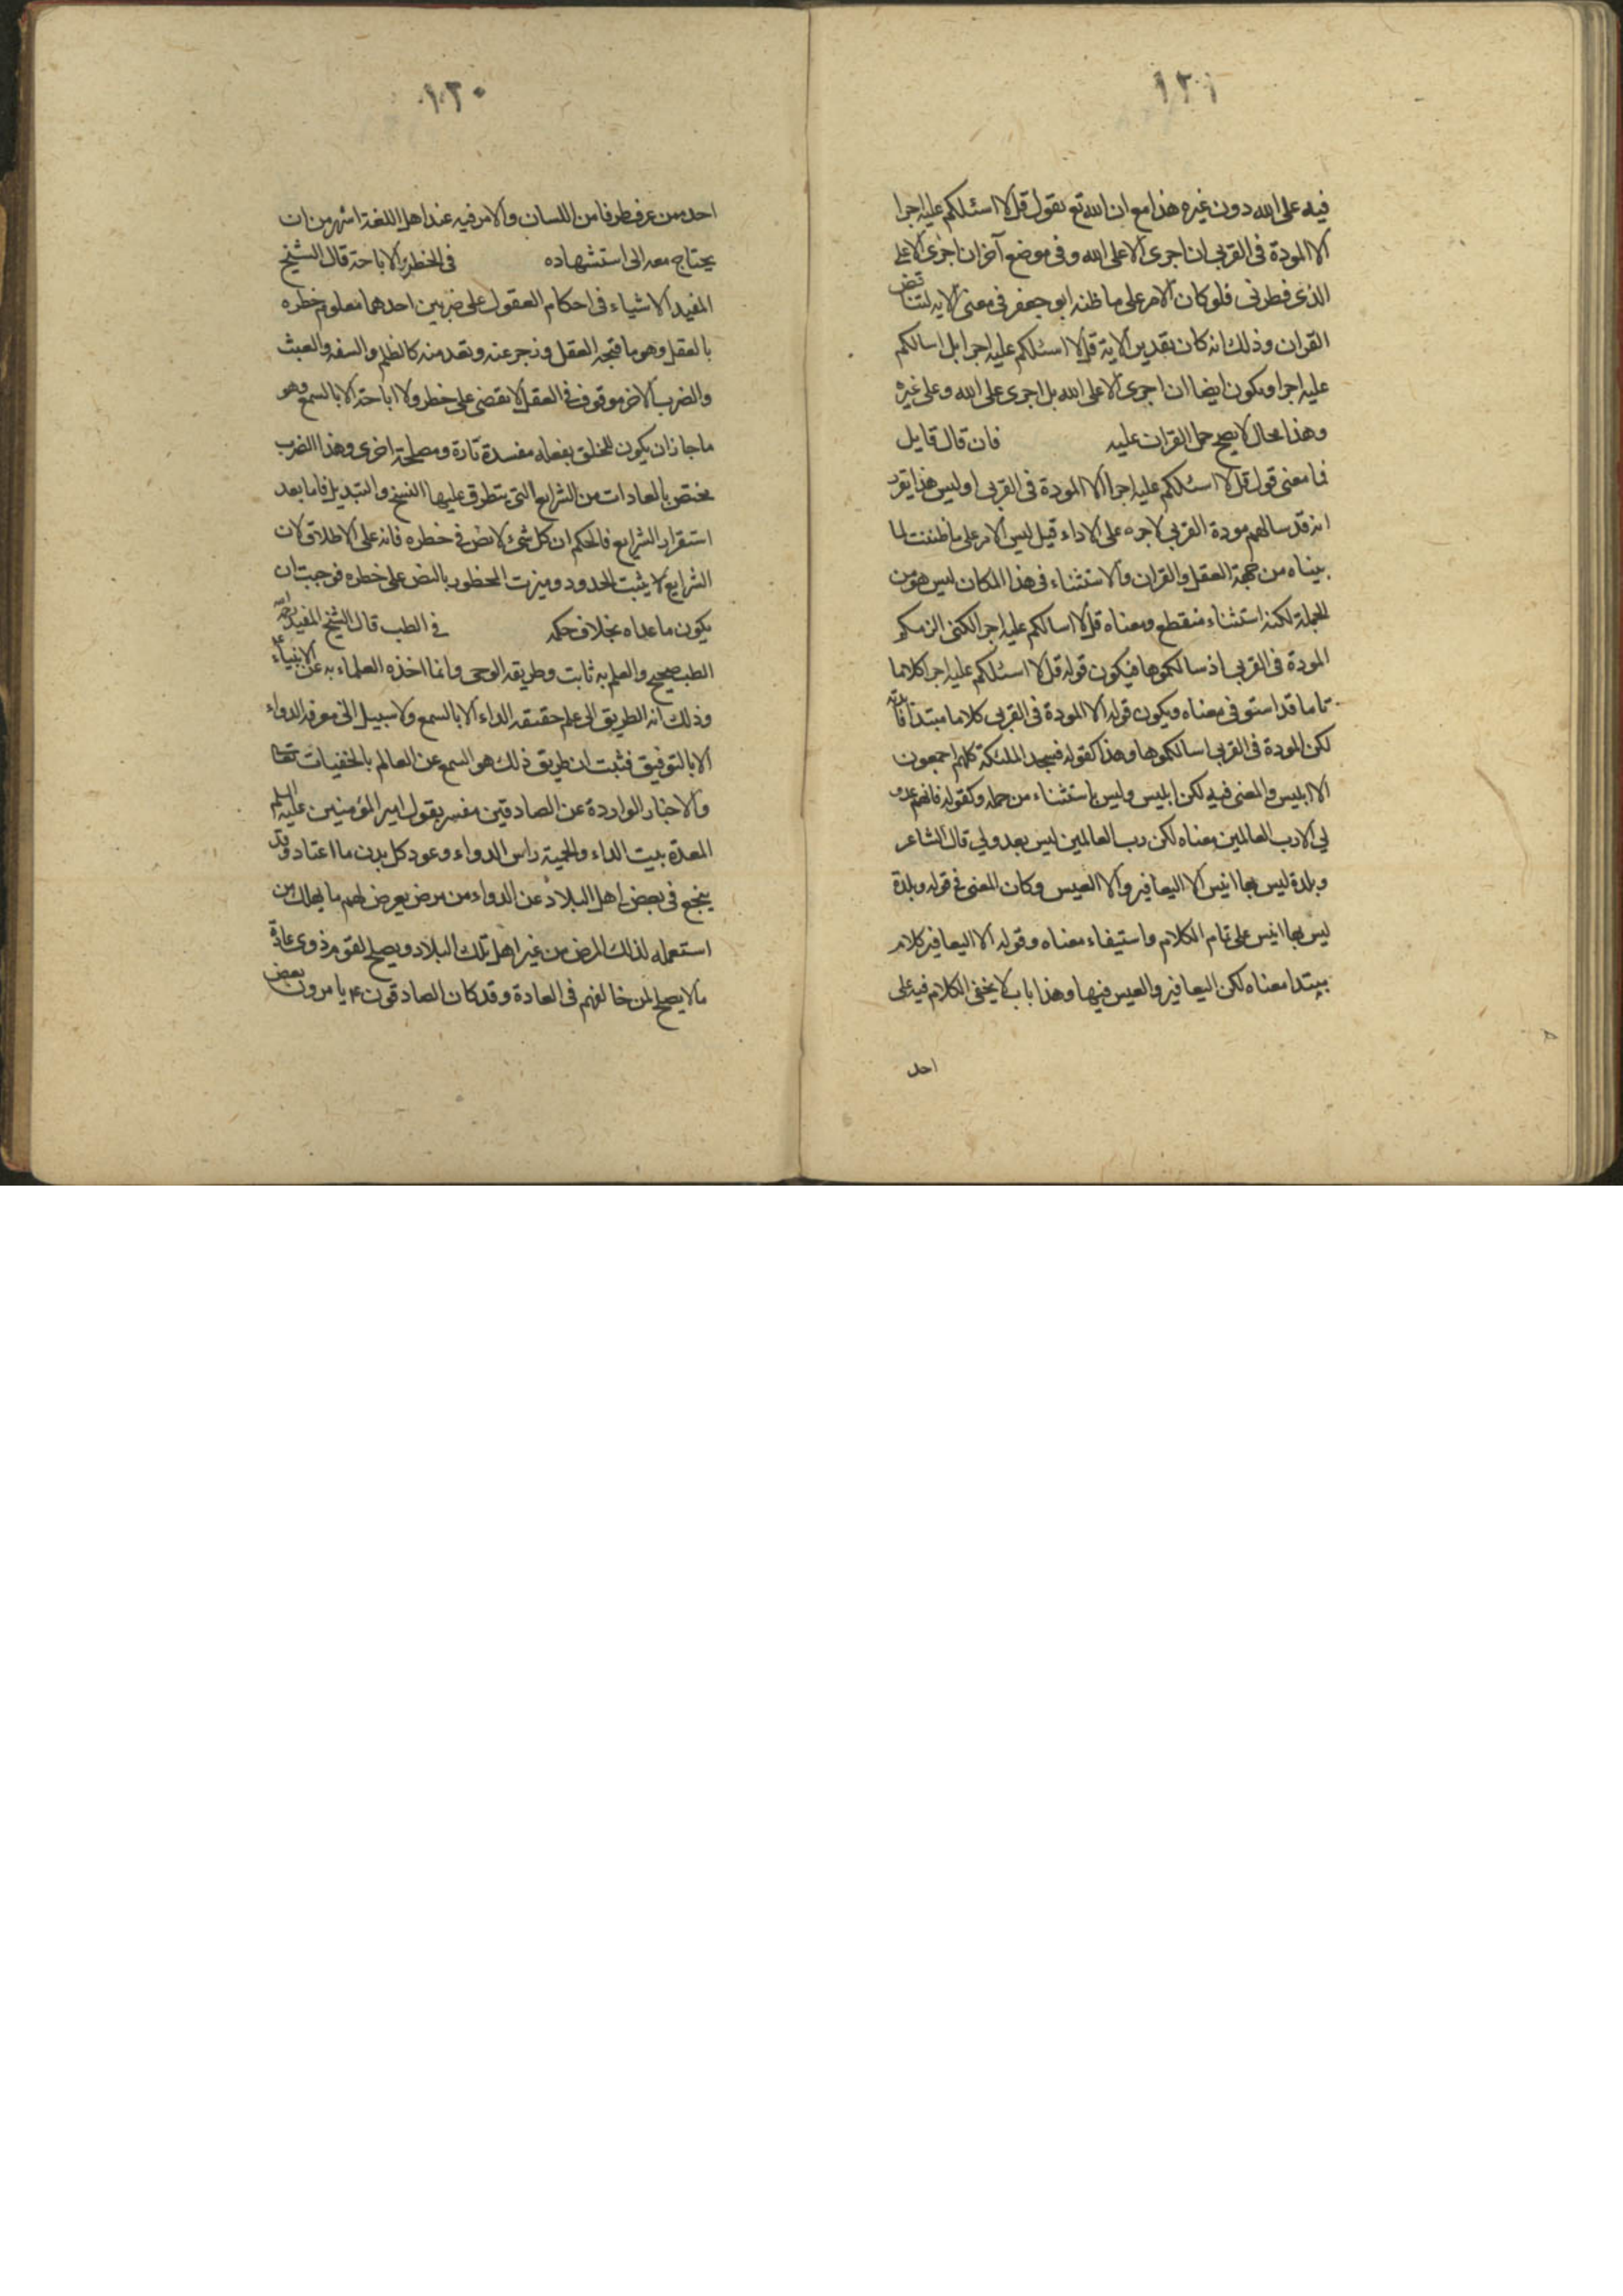 ١٢١
فيه على الله دون غيره هذا مع ان الله تع يقول قل لا اسئلكم عليه اجرا
الا المودة فى القربى ان اجرى الا على الله وفى موضع آخر ان اجرى الا على
الذى فطرنى فلو كان الامر على ما ظنه ابو جعفر فى معنى الايه لتناقض
القران وذلك انه كان تقدير الاية قل لا اسئلكم عليه اجرا بل اسالكم
عليه اجرا ويكون ايضا ان اجرى الا على الله بل اجرى على الله وعلى غيره
وهذا محال لا يصح حمل القران عليه فان قال قايل
فما معنى قول قل لا اسئلكم عليه اجرا الا المودة فى القربى اوليس هذا
انه قد سالهم مودة القربى لاجره على الاداء قيل ليس الامر على ما ظننت لما
بيناه من حجة العقل والقران والاستثناء فى هذا المكان ليس هو من
الجملة لكنه استثناء منقطع ومعناه قل لا اسالكم عليه اجرا لكنى الزمكم
المودة فى القربى اذ سالكموها فيكون قوله قل لا اسئلكم عليه اجرا كلاما
تاما قد استوفى معناه ويكون قوله الا المودة فى القربى كلاما مبتدا فائدته
لكن المودة فى القربى اسالكموها وهذا كقوله فسجد الملئكة كلهم اجمعون
الا ابليس والمعنى فيه لكن ابليس وليس باستثناء من جمله وكقوله فانهم عدو
لي الا رب العالمين معناه لكن رب العالمين ليس بعدو لي قال الشاعر
وبلدة ليس بها انيس الا اليعافير والا العيس وكان المعنى فى قوله وبلدة
ليس بها انيس على تمام الكلام واستيفاء معناه وقوله الا اليعافير كلام
مبتدا معناه لكن اليعافير والعيس فيها وهذا باب لا يخفى الكلام فيه على
احد
١٢٠
احد ممن عرف طرفا من اللسان والامر فيه عند اهل اللغة اشهر من ان
يحتاج معه الى استشهاده فى الخطر والاباحة قال الشيخ
المفيد الاشياء فى احكام العقول على ضربين احدهما معلوم خطره
بالعقل وهو ما قبحه العقل وزجر عنه وبعد منه كالظلم والسفه والعبث
والضرب الاخر موقوف فى العقل لا يقضى على خطر ولا اباحة الا بالسمع وهو
ما جاز ان يكون للخلق بفعله مفسدة تارة ومصلحة اخرى وهذا الضرب
مختص بالعادات من الشرايع التى يتطرق عليها النسخ والتبديل فاما بعد
استقرار الشرايع فالحكم ان كل شئ لا نص فى خطره فانه على الاطلاق لان
الشرايع لا يثبت الحدود وميزت المحظور بالنص على خطره فوجبت ان
يكون ما عداه بخلاف حكمه فى الطب قال الشيخ المفيد رحمه الله
الطب صحيح والعلم به ثابت وطريقه الوحى وانما اخذه العلماء به عن الانبياء ع
وذلك انه الطريق الى علم حقيقه الداء الا بالسمع ولا سبيل الى معرفه الدواء
الا بالتوفيق فثبت ان طريق ذلك هو السمع عن العالم بالخفيات تعالى
والاخبار الواردة عن الصادقين مفسر بقول امير المؤمنين عليه السلم
المعدة بيت الداء والحمية راس الدواء وعود كل بدن ما اعتاد وقد
ينجع فى بعض اهل البلاد عن الدواء من مرض يعرض لهم ما يهلك من
استعمله لذلك المرض من غير اهل تلك البلاد ويصلح لقوم ذوى عادة
ما لا يصلح لمن خالفهم فى العادة وقد كان الصادقون ع يامرون بعض